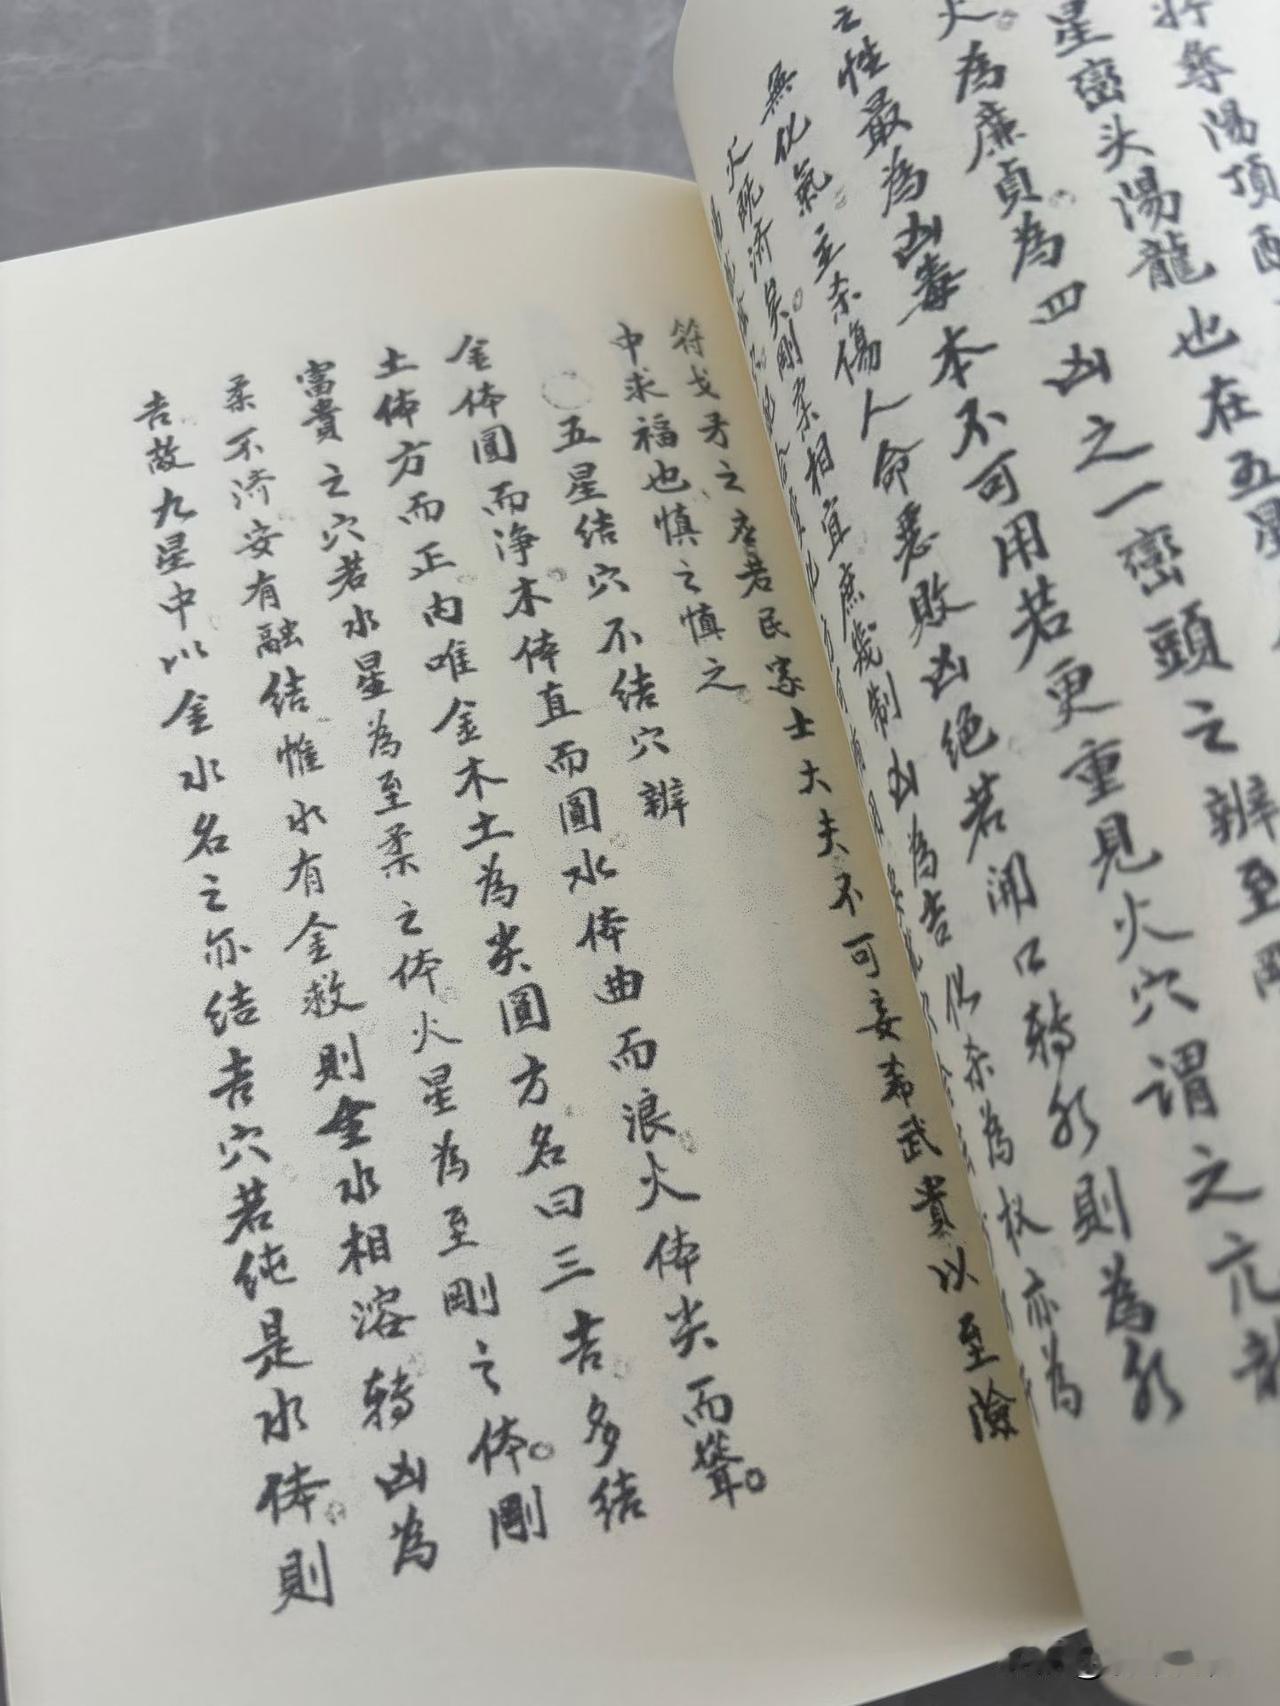 奪陽頂配
星巒头陽龍也在五星
火為廉貞為四凶之一巒頭之辨至剛
之性最為凶毒本不可用若更重見火穴謂之亢龍
無化氣主杀傷人命惡敗凶絕若開口轉則為
火既济矣剛柔相宜庶幾制凶為吉化杀為权亦為
符戈矛之应若民家士大夫不可妄希武貴以至險
中求福也慎之慎之
〇五星結穴不結穴辨
金体圓而净木体直而圓水体曲而浪火体尖而聳。
土体方而正内唯金木土為尖圓方名曰三吉多結
富貴之穴若水星為至柔之体火星為至剛之体。剛
柔不济安有融結惟水有金救則金水相溶轉凶為
吉故九星中以金水名之亦結吉穴若純是水体則